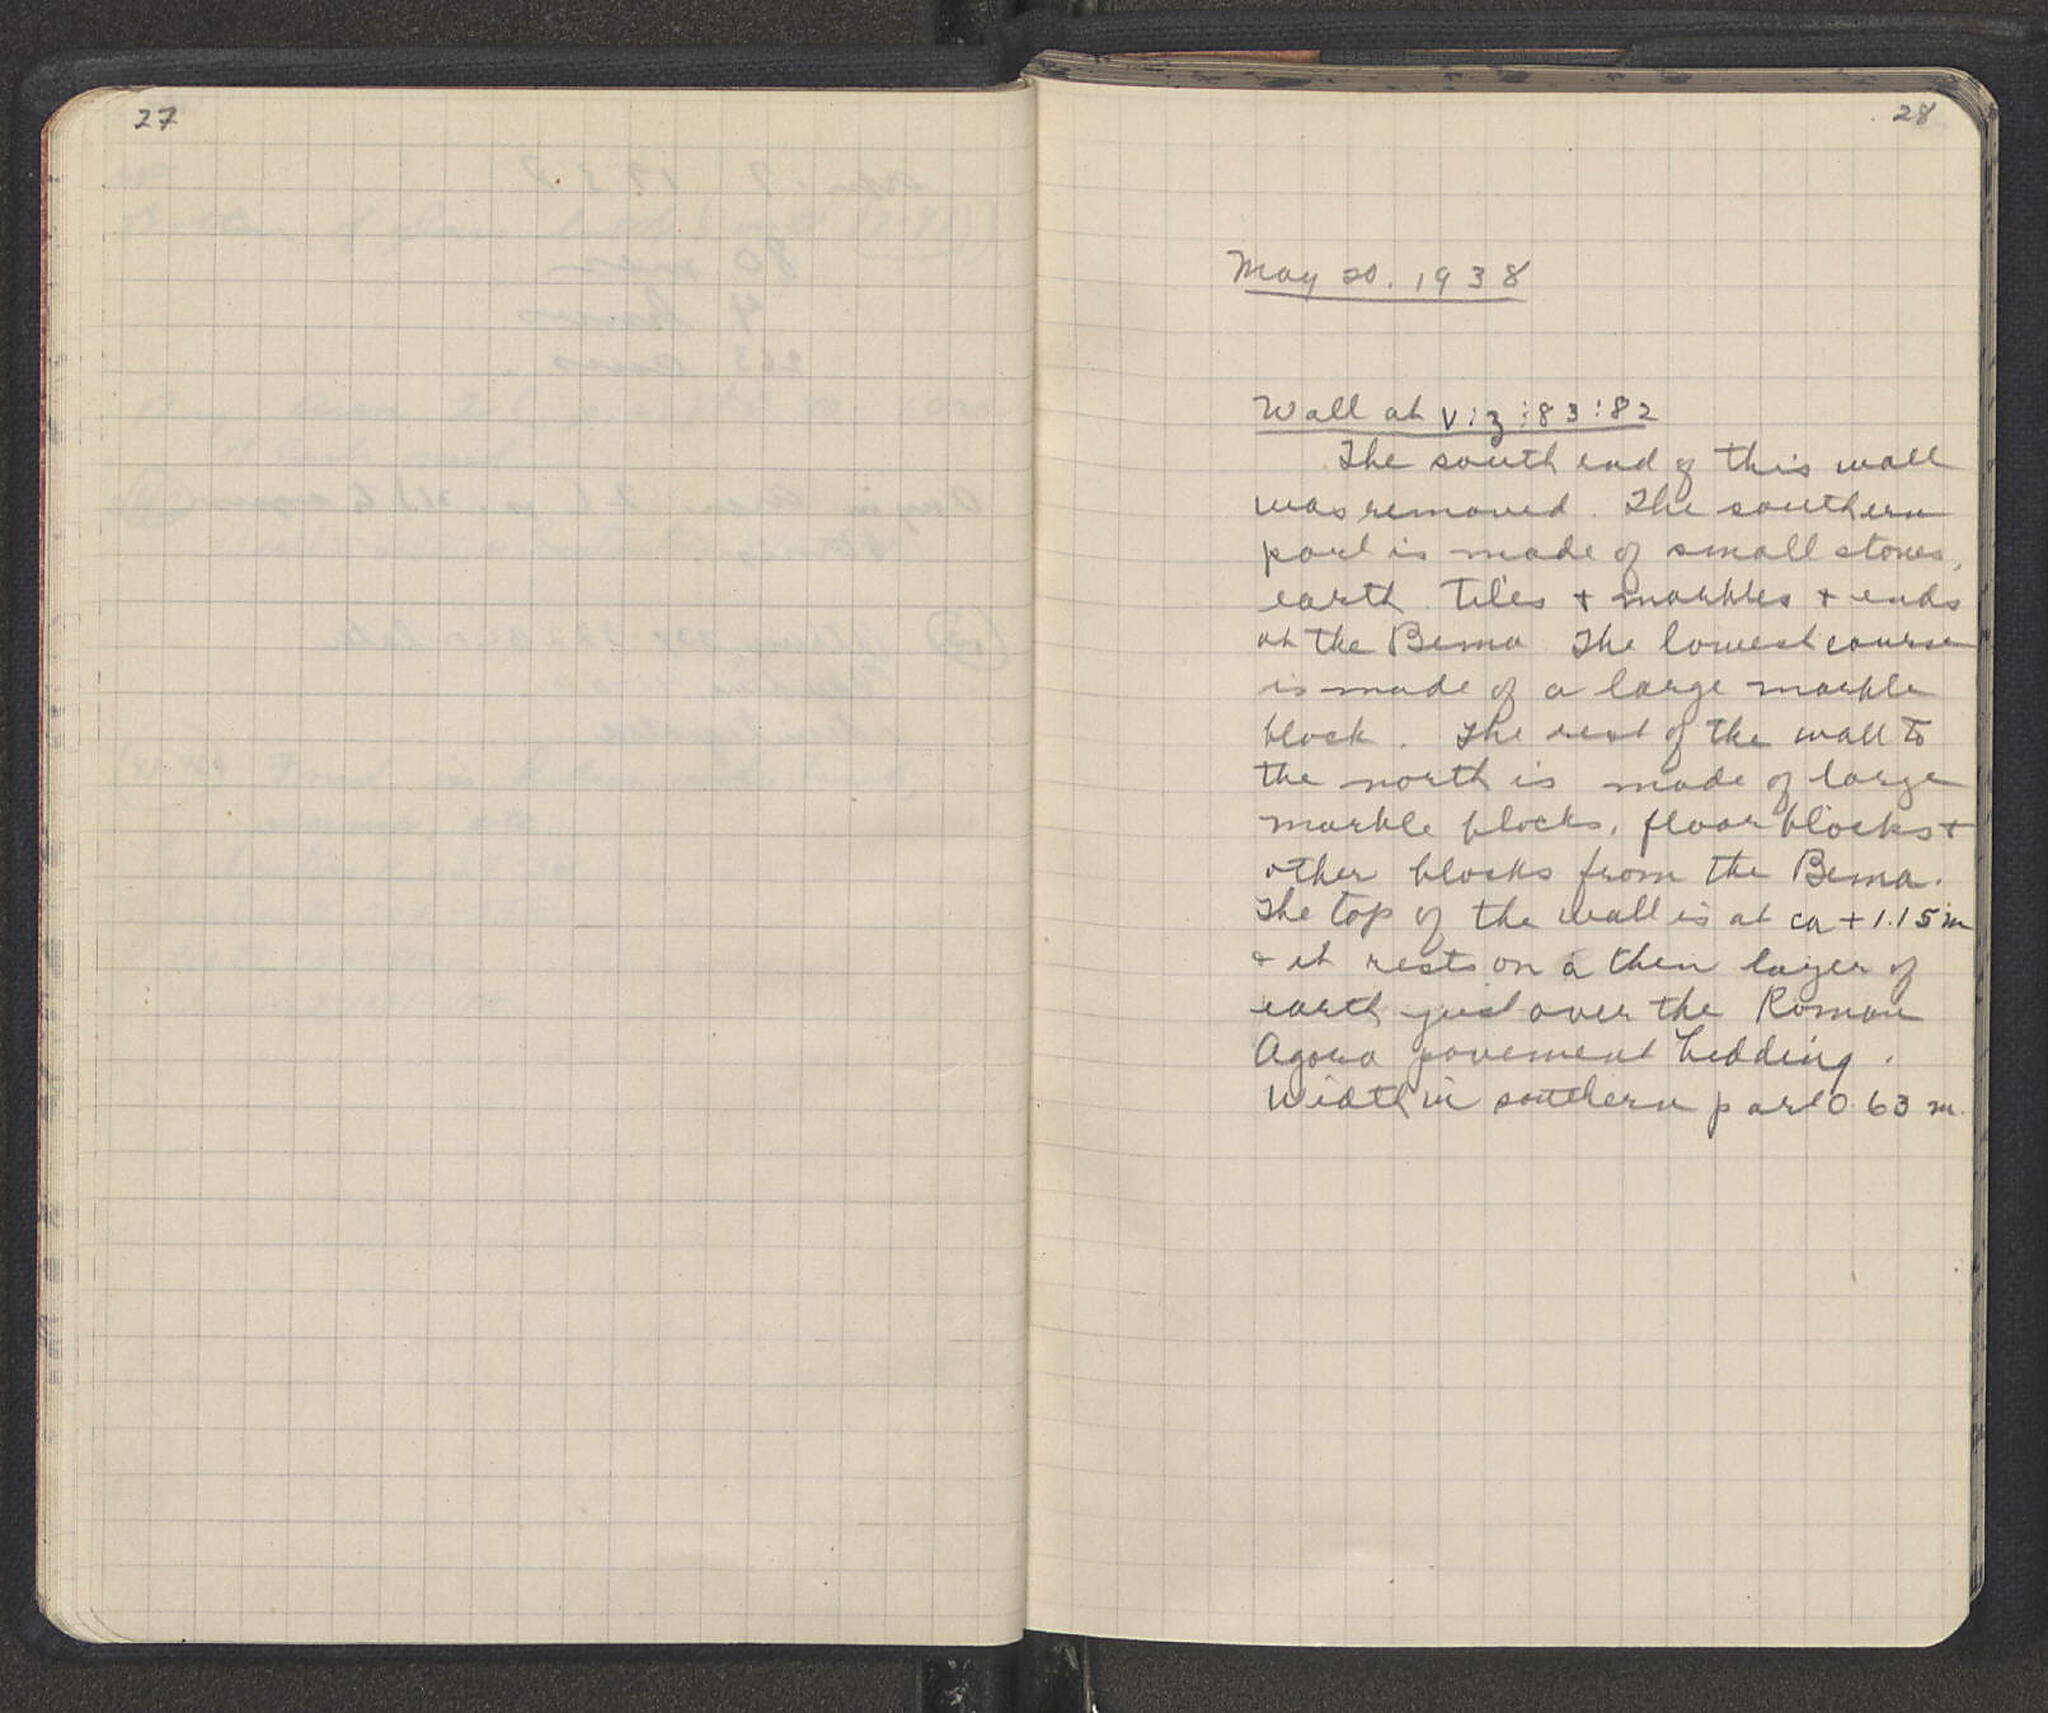 27
28
May 20. 1938
Wall at V:z:83:82
The south end of this wall
was removed. The southern
part is made of small stones,
earth tiles + marbles + ends
at the Bema The lowest course
is made of a large marble
block. The rest of the wall to
the north is made of large
marble blocks, floor blocks +
other blocks from the Bema.
The top of the wall is at ca + 1.15 m
+ it rests on a thin layer of
earth just over the Roman
Agora pavement bedding.
Width in southern part 0.63 m.